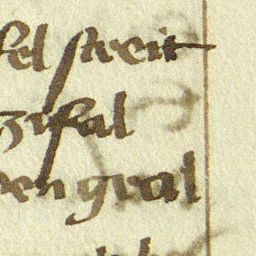 fel ſtreit
zifal
den gral